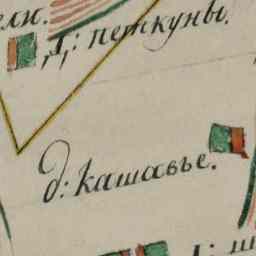 ели.
Д: петкуны.
д: кашавье.
Д: ш